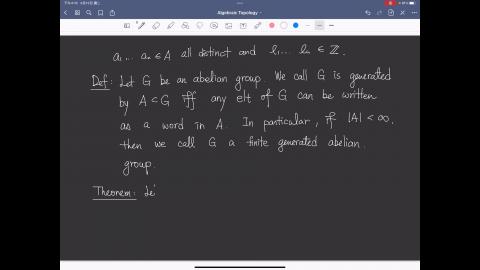 Algebraic Topology
a₁ ... aₙ ∈ A all distinct and l₁ ... lₙ ∈ ℤ.
Def: Let G be an abelian group. We call G is generated
by A < G iff any elt of G can be written
as a word in A. In particular, if |A| < ∞,
then we call G a finite generated abelian
group.
Theorem: Le